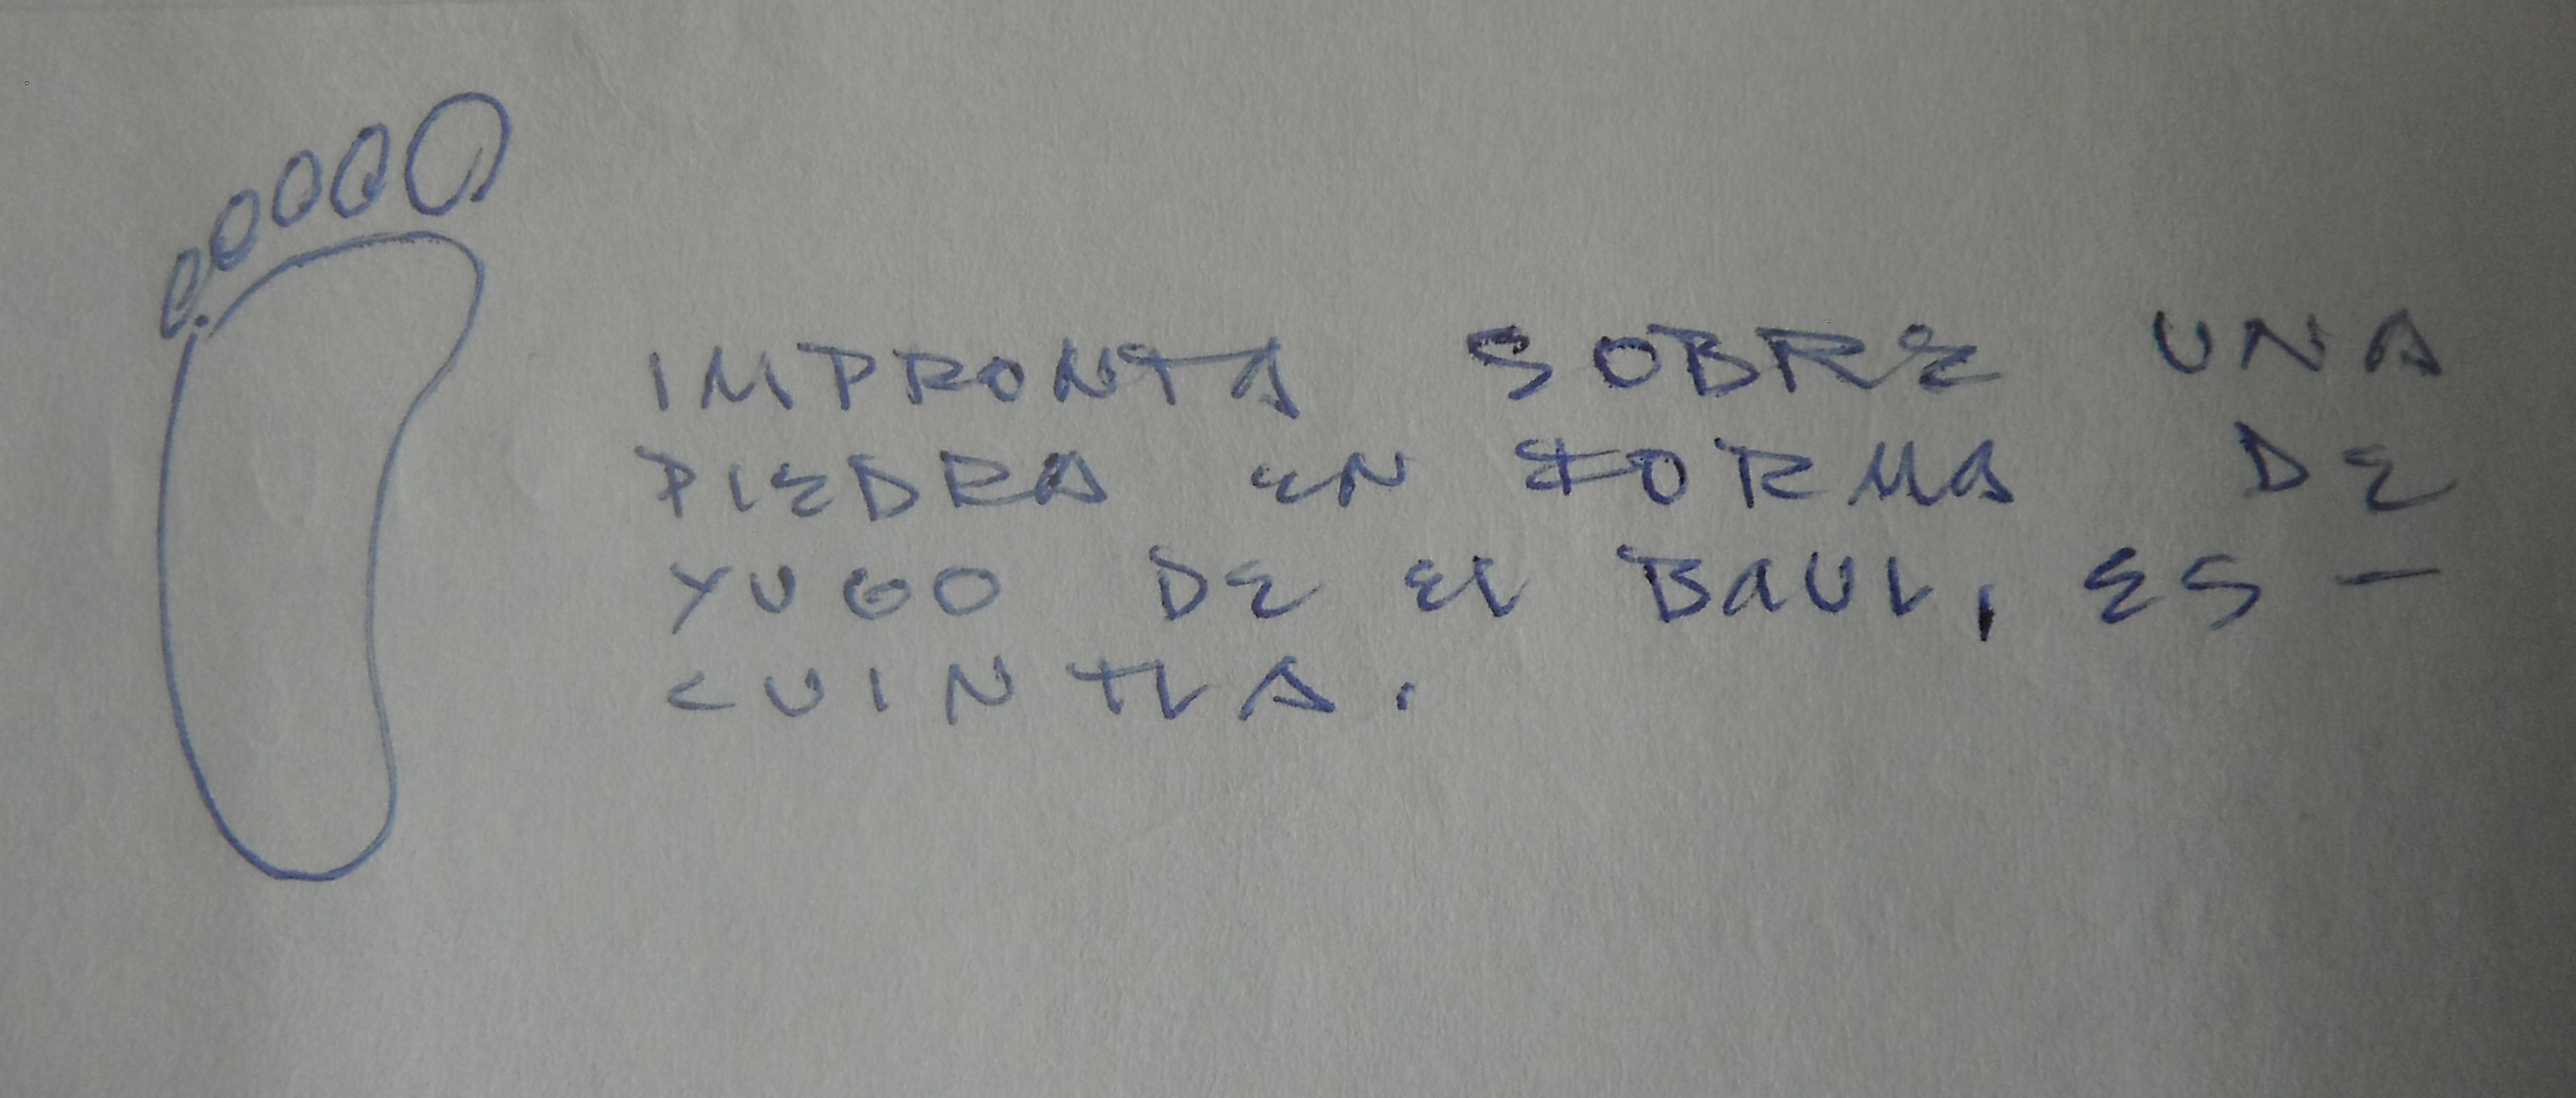 IMPRONTA SOBRE UNA
PIEDRA EN FORMA DE
YUGO DE EL BAUL, ES-
CUINTLA.